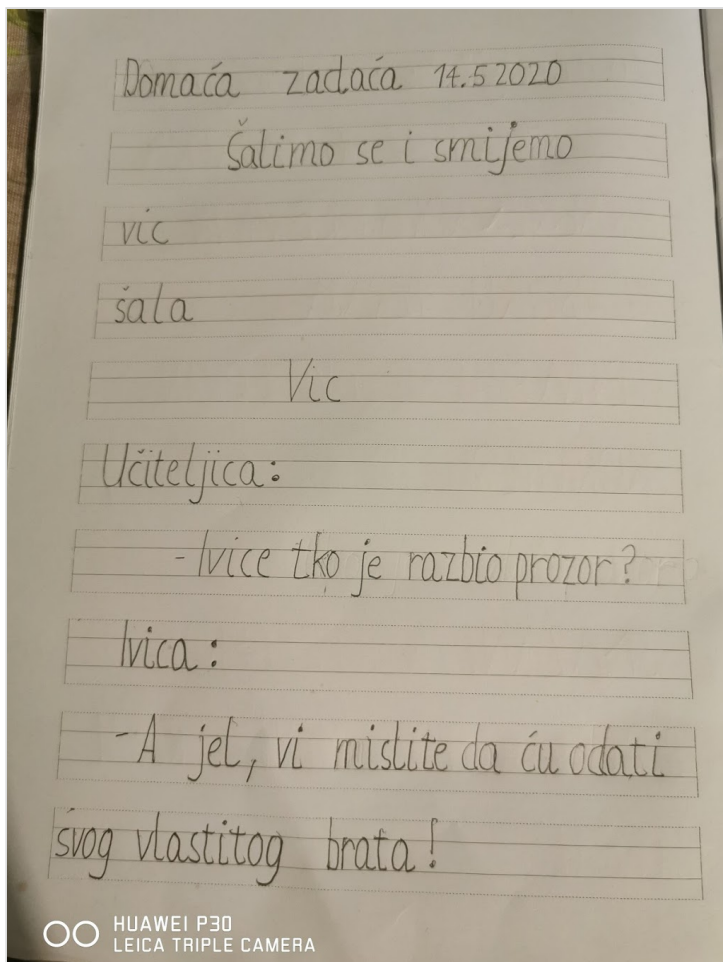 Domaća zadaća 14.5 2020
Šalimo se i smijemo
vic
šala
Vic
Učiteljica:
- Ivice tko je razbio prozor?
Ivica:
-A jel, vi mislite da ću odati
svog vlastitog brata!
HUAWEI P30
LEICA TRIPLE CAMERA